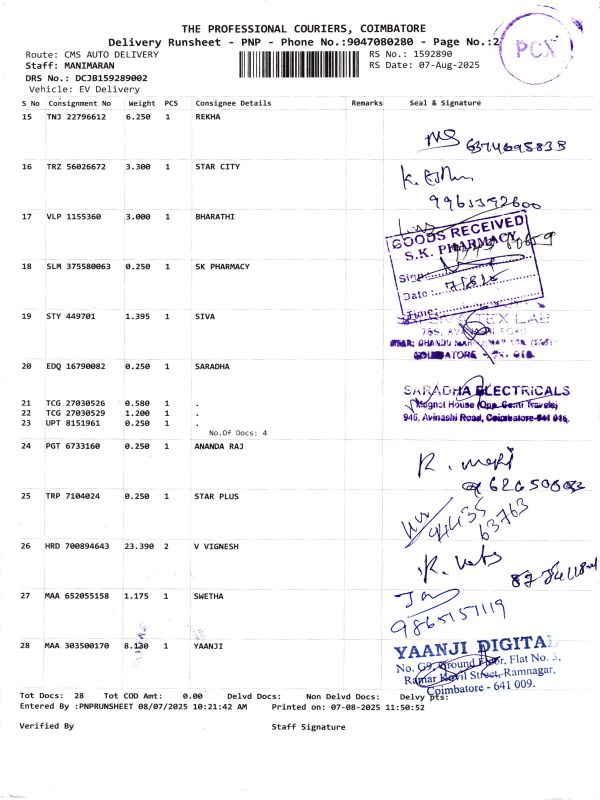 THE PROFESSIONAL COURIERS, COIMBATORE
Delivery Runsheet - PNP - Phone No.:9047080280 - Page No.:2
PCX
Route: CMS AUTO DELIVERY
RS No.: 1592890
Staff: MANIMARAN
RS Date: 07-Aug-2025
DRS No.: DCJB159289002
Vehicle: EV Delivery
S No Consignment No Weight PCS Consignee Details Remarks Seal & Signature
15 TNJ 22796612 6.250 1 REKHA
16 TRZ 56026672 3.300 1 STAR CITY
9961392600
17 VLP 1155360 3.000 1 BHARATHI
GOODS RECEIVED
S.K. PHARMACY
18 SLM 375580063 0.250 1 SK PHARMACY
Sign:
Date:
Time:
19 STY 449701 1.395 1 SIVA
TEX LAB
COIMBATORE
20 EDQ 16790082 0.250 1 SARADHA
SARADHA ELECTRICALS
21 TCG 27030526 0.580 1 .
Magnot House (Opp. Genti Travels)
22 TCG 27030529 1.200 1 .
23 UPT 8151961 0.250 1 .
946, Avinashi Road, Coimbatore-641 018.
No.Of Docs: 4
24 PGT 6733160 0.250 1 ANANDA RAJ
25 TRP 7104024 0.250 1 STAR PLUS
94435
63763
26 HRD 700894643 23.390 2 V VIGNESH
27 MAA 652055158 1.175 1 SWETHA
9865157119
28 MAA 303500170 8.130 1 YAANJI
YAANJI DIGITAL
No. G9, Ground Floor, Flat No. 3,
Ramar Kovil Street, Ramnagar,
Coimbatore - 641 009.
Tot Docs: 28 Tot COD Amt: 0.00 Delvd Docs: Non Delvd Docs: Delvy pts:
Entered By :PNPRUNSHEET 08/07/2025 10:21:42 AM Printed on: 07-08-2025 11:50:52
Verified By Staff Signature